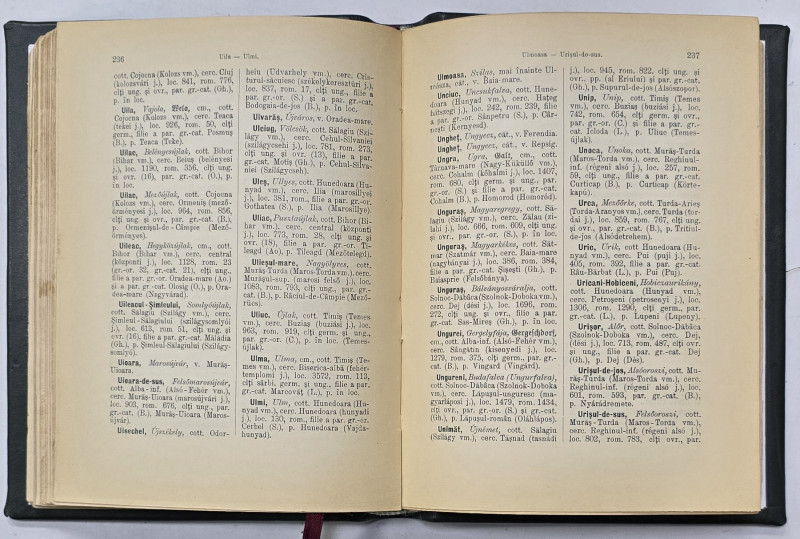 236
Uila — Ulmi.
cott. Cojocna (Kolozs vm.), cerc. Cluj
(kolozsvári j.), loc. 841, rom. 776,
cĭţĭ ung. şi ovr., p. par. gr.-cat. (Gh.),
p. în loc.
Uila, Vajola, Weio, cm., cott.
Cojocna (Kolozs vm.), cerc. Teaca
(tekei j.), loc. 926, rom. 50, cĭţĭ
germ., filie a par. gr.-cat. Posmuş
(B.), p. Teaca (Teke).
Uilac, Belényesújlak, cott. Bihor
(Bihar vm.), cerc. Beiuş (belényesi
j.), loc. 1190, rom. 356, cĭţĭ ung. şi
ovr. (16), par. gr.-cat. (O.), p.
în loc.
Uilac, Mezőújlak, cott. Cojocna
(Kolozs vm.), cerc. Ormeniş (mező-
örményesi j.), loc. 964, rom. 856,
cĭţĭ ung. şi ovr., par. gr.-cat. (B.),
p. Ormenişul-de - Câmpie (Mező-
örményes).
Uileac, Hegyközújlak, cm., cott.
Bihor (Bihar vm.), cerc. central
(központi j.), loc. 1128, rom. 23
(gr.-or. 32, gr.-cat. 21), ung.,
filie a par. gr.-or. Oradea-mare (Ao.)
şi a par. gr.-cat. Olosig (O.), p. Ora-
dea-mare (Nagyvárad).
Uileacul - Şimleului, Somlyóújlak,
cott. Sălagiu (Szilágy vm.), cerc.
Şimleul-Sălagiului (szilágysomlyói
j.), loc. 613, rom 51, cĭţĭ ung. şi
ovr. (16), filie a par. gr.-cat. Măládia
(Gh.), p. Şimleul-Sălagiului (Szilágy-
somlyó).
Uioara, Marosújvár, v. Murăş-
Uioara.
Uioara-de-sus, Felsőmarosújvár,
cott. Alba-inf. (Alsó-Fehér vm.),
cerc. Murăş-Uioara (marosújvári j.),
loc. 903, rom. 676, cĭţĭ ung., par.
gr.-cat. (B.), p. Murăş-Uioara (Maros-
újvár).
Uisechel, Ujszékely, cott. Odor-
heiu (Udvarhely vm.), cerc. Cris-
turul-săcuiesc (székelykeresztúri j.),
loc. 837, rom. 17, cĭţĭ ung., filie a
par. gr.-or. (S.) şi a par. gr.-cat.
Bodogaia-de-jos (B.), p. în loc.
Uivarăş, Újváros, v. Oradea-mare.
Ulciug, Völcsök, cott. Sălagiu (Szi-
lágy vm.), cerc. Cehul-Silvaniei
(szilágycsehi j.), loc. 781, rom. 273,
cĭţĭ ung. şi ovr. (13), filie a par.
gr.-cat. Motiş (Gh.), p. Cehul-Silvaniei
(Szilágycseh).
Uleş, Ullyes, cott. Hunedoara (Hu-
nyad vm.), cerc. Ilia (marosillyei
j.), loc. 381, rom., filie a par. gr.-or.
Gothatea (S.), p. Ilia (Marosillye).
Uliac, Pusztaújlak, cott. Bihor (Bi-
har vm.), cerc. central (központi
j.), loc. 773, rom. 28, cĭţĭ ung. şi
ovr. (18), filie a par. gr.-or. Ti-
leagd (Ao.), p. Tileagd (Mezőtelegd).
Ulieşul-mare, Nagyölyves, cott.
Murăş-Turda (Maros-Torda vm.), cerc.
Murăşul-sup. (marosi felső j.), loc.
1083, rom. 793, cĭţĭ ung., par. gr.-
cat. (B.), p. Răciul-de-Câmpie (Mező-
rücs).
Uliuc, Újlak, cott. Timiş (Temes
vm.), cerc. Buziaş (buziási j.), loc.
963, rom. 919, cĭţĭ germ. şi ung.,
par. gr.-or. (C.), p. în loc. (Temes-
újlak).
Ulma, Ulma, cm., cott. Timiş (Te-
mes vm.), cerc. Biserica-albă (fehér-
templomi j.), loc. 3572, rom. 113,
cĭţĭ sârbi, germ. şi ung., filie a par.
gr.-cat. Marcovăţ (L.), p. în loc.
Ulmi, Ulm, cott. Hunedoara (Hu-
nyad vm.), cerc. Hunedoara (hunyadi
j.), loc. 130, rom., filie a par. gr.-or.
Cerbel (S.), p. Hunedoara (Vajda-
hunyad).
Ulmoasa — Urişul-de-sus.
237
Ulmoasa, Szilas, mai înainte Ul-
cuásza, cát., v. Baia-mare.
Unciuc, Uncsukfalva, cott. Hune-
doara (Hunyad vm.), cerc. Haţeg
(hátszegi j.), loc. 242, rom. 239, filie
a par. gr.-or. Sânpetru (S.), p. Câr-
neşti (Kernyesd).
Ungheţ, Ungyecz, căt., v. Ferendia.
Ungheţ, Ungyecz, căt., v. Repsig.
Ungra, Ugra, Galt, cm., cott.
Târnava-mare (Nagy-Küküllő vm.),
cerc. Cohalm (kőhalmi j.), loc. 1407,
rom. 680, cĭţĭ germ. şi ung., par.
gr.-or. (S) şi filie a par. gr.-cat.
Cohalm (B.), p. Homorod (Homoród).
Unguraş, Magyaregregy, cott. Să-
lagiu (Szilágy vm.), cerc. Zălau (zi-
lahi j.), loc. 666, rom. 609, cĭţĭ ung.
şi ovr., par. gr.-or. (S.), p. în loc.
Unguraş, Magyarkékes, cott. Săt-
mar (Szatmár vm.), cerc. Baia-mare
(nagybányai j.), loc. 386, rom. 384,
filie a par. gr.-cat. Şişeşti (Gh.), p.
Baiasprie (Felsőbánya).
Unguraş, Bálványosváralja, cott.
Solnoc-Dăbâca (Szolnok-Doboka vm.),
cerc. Dej (dési j.), loc. 1696, rom.
272, cĭţĭ ung. şi ovr., filie a par.
gr.-cat. Sas-Mireş (Gh.), p. în loc.
Ungurei, Gergelyfája, Gergelsdorf,
cm., cott. Alba-inf. (Alsó-Fehér vm.),
cerc. Sângătin (kisenyedi j.), loc.
1279, rom. 375, cĭţĭ germ., par. gr.-
cat. (B.), p. Vingard (Vingárd).
Ungureni, Budafalva (Ungurfalva),
cott. Solnoc-Dăbâca (Szolnok-Doboka
vm.), cerc. Lăpuşul-unguresc (ma-
gyarláposi j.), loc. 1479, rom. 1434,
cĭţĭ ovr., par. gr.-or. (S.) şi gr.-cat.
(Gh.), p. Lăpuşul-român (Oláhlápos).
Unimăt, Ujnémet, cott. Sălagiu
(Szilágy vm.), cerc. Tăşnad (tasnádi
j.), loc. 945, rom. 822, cĭţĭ ung. şi
ovr., pp. (al Eriului) şi par. gr.-cat.
(Gh.), p. Supurul-de-jos (Alsószopor).
Unip, Unip, cott. Timiş (Temes
vm.), cerc. Buziaş (buziási j.), loc.
742, rom. 654, cĭţĭ germ. şi ovr.,
par. gr.-or. (C.) şi filie a par. gr.-
cat. Icloda (L.), p. Uliuc (Temes-
újlak).
Unoca, Unoka, cott. Murăş-Turda
(Maros-Torda vm.), cerc. Reghinul-
inf. (régeni alsó j.), loc. 257, rom.
59, cĭţĭ ung., filie a par. gr.-cat.
Curticap (B.), p. Curticap (Körte-
kapu).
Urca, Mezőörke, cott. Turda-Arieş
(Torda-Aranyos vm.), cerc. Turda (tor-
dai j.), loc. 859, rom. 767, cĭţĭ ung.
şi ovr., par. gr.-cat. (B.), p. Tritiul-
de-jos (Alsódetrehem).
Uric, Urik, cott Hunedoara (Hu-
nyad vm.), cerc. Pui (puji j.), loc.
405, rom. 392, filie a par. gr.-cat.
Râu-Bărbat (L.), p. Pui (Puj).
Uricani-Hobiceni, Hobiczaurikány,
cott. Hunedoara (Hunyad vm.),
cerc. Petroşeni (petrosenyi j.), loc.
1306, rom. 1290, cĭţĭ germ., par.
gr.-cat. (L.), p. Lupeni (Lupeny).
Urişor, Alőr, cott Solnoc-Dăbâca
(Szolnok-Doboka vm.), cerc. Dej,
(dési j.), loc. 713, rom. 487, cĭţĭ ovr.
şi ung., filie a par. gr.-cat. Dej
(Gh.), p. Dej (Dés).
Urişul-de-jos, Alsóoroszi, cott. Mu-
răş-Turda (Maros-Torda vm.), cerc.
Reghinul-inf. (régeni alsó j.), loc.
601, rom. 593, par. gr.-cat. (B.),
p. Nyărădremete.
Urişul-de-sus, Felsőoroszi, cott.
Murăş-Turda (Maros-Torda vm.),
cerc. Reghinul-inf. (régeni alsó j.),
loc. 802, rom. 783, cĭţĭ ovr., par.